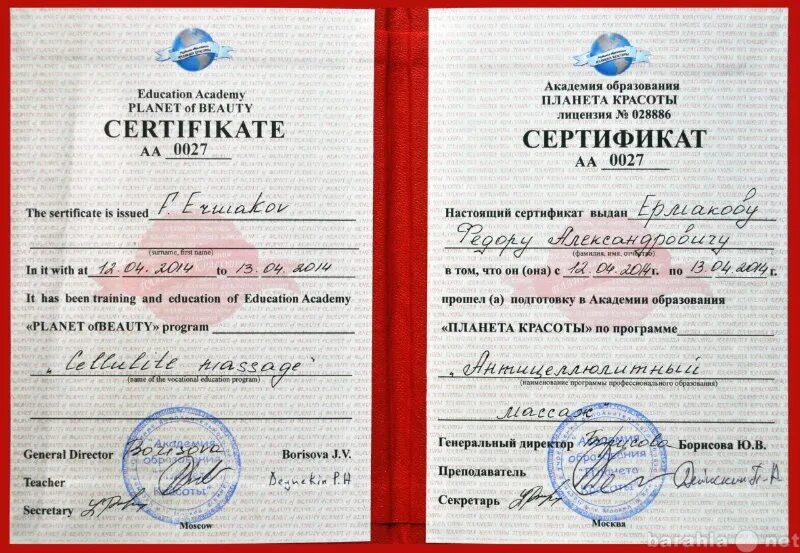 Education Academy
PLANET of BEAUTY
CERTIFIKATE
АА 0027
The sertificate is issued F. Ermakov
(surname, first name)
In it with at 12.04.2014 to 13.04.2014
It has been training and education of Education Academy
«PLANET ofBEAUTY» program
"Cellulite massage"
(name of the vocational education program)
General Director Borisova Borisova J.V.
Teacher
Secretary
Академия
образования
красоты
Moscow
Академия образования
ПЛАНЕТА КРАСОТЫ
лицензия № 028886
СЕРТИФИКАТ
АА 0027
Настоящий сертификат выдан Ермакову
Федору Александровичу
(фамилия, имя, отчество)
в том, что он (она) с 12.04.2014г. по 13.04.2014г.
прошел (а) подготовку в Академии образования
«ПЛАНЕТА КРАСОТЫ» по программе
"Антицеллюлитный
(наименование программы профессионального образования)
массаж"
Генеральный директор Борисова Борисова Ю.В.
Преподаватель
Секретарь
Академия
образования
Планета
красоты
Москва
barahla.net